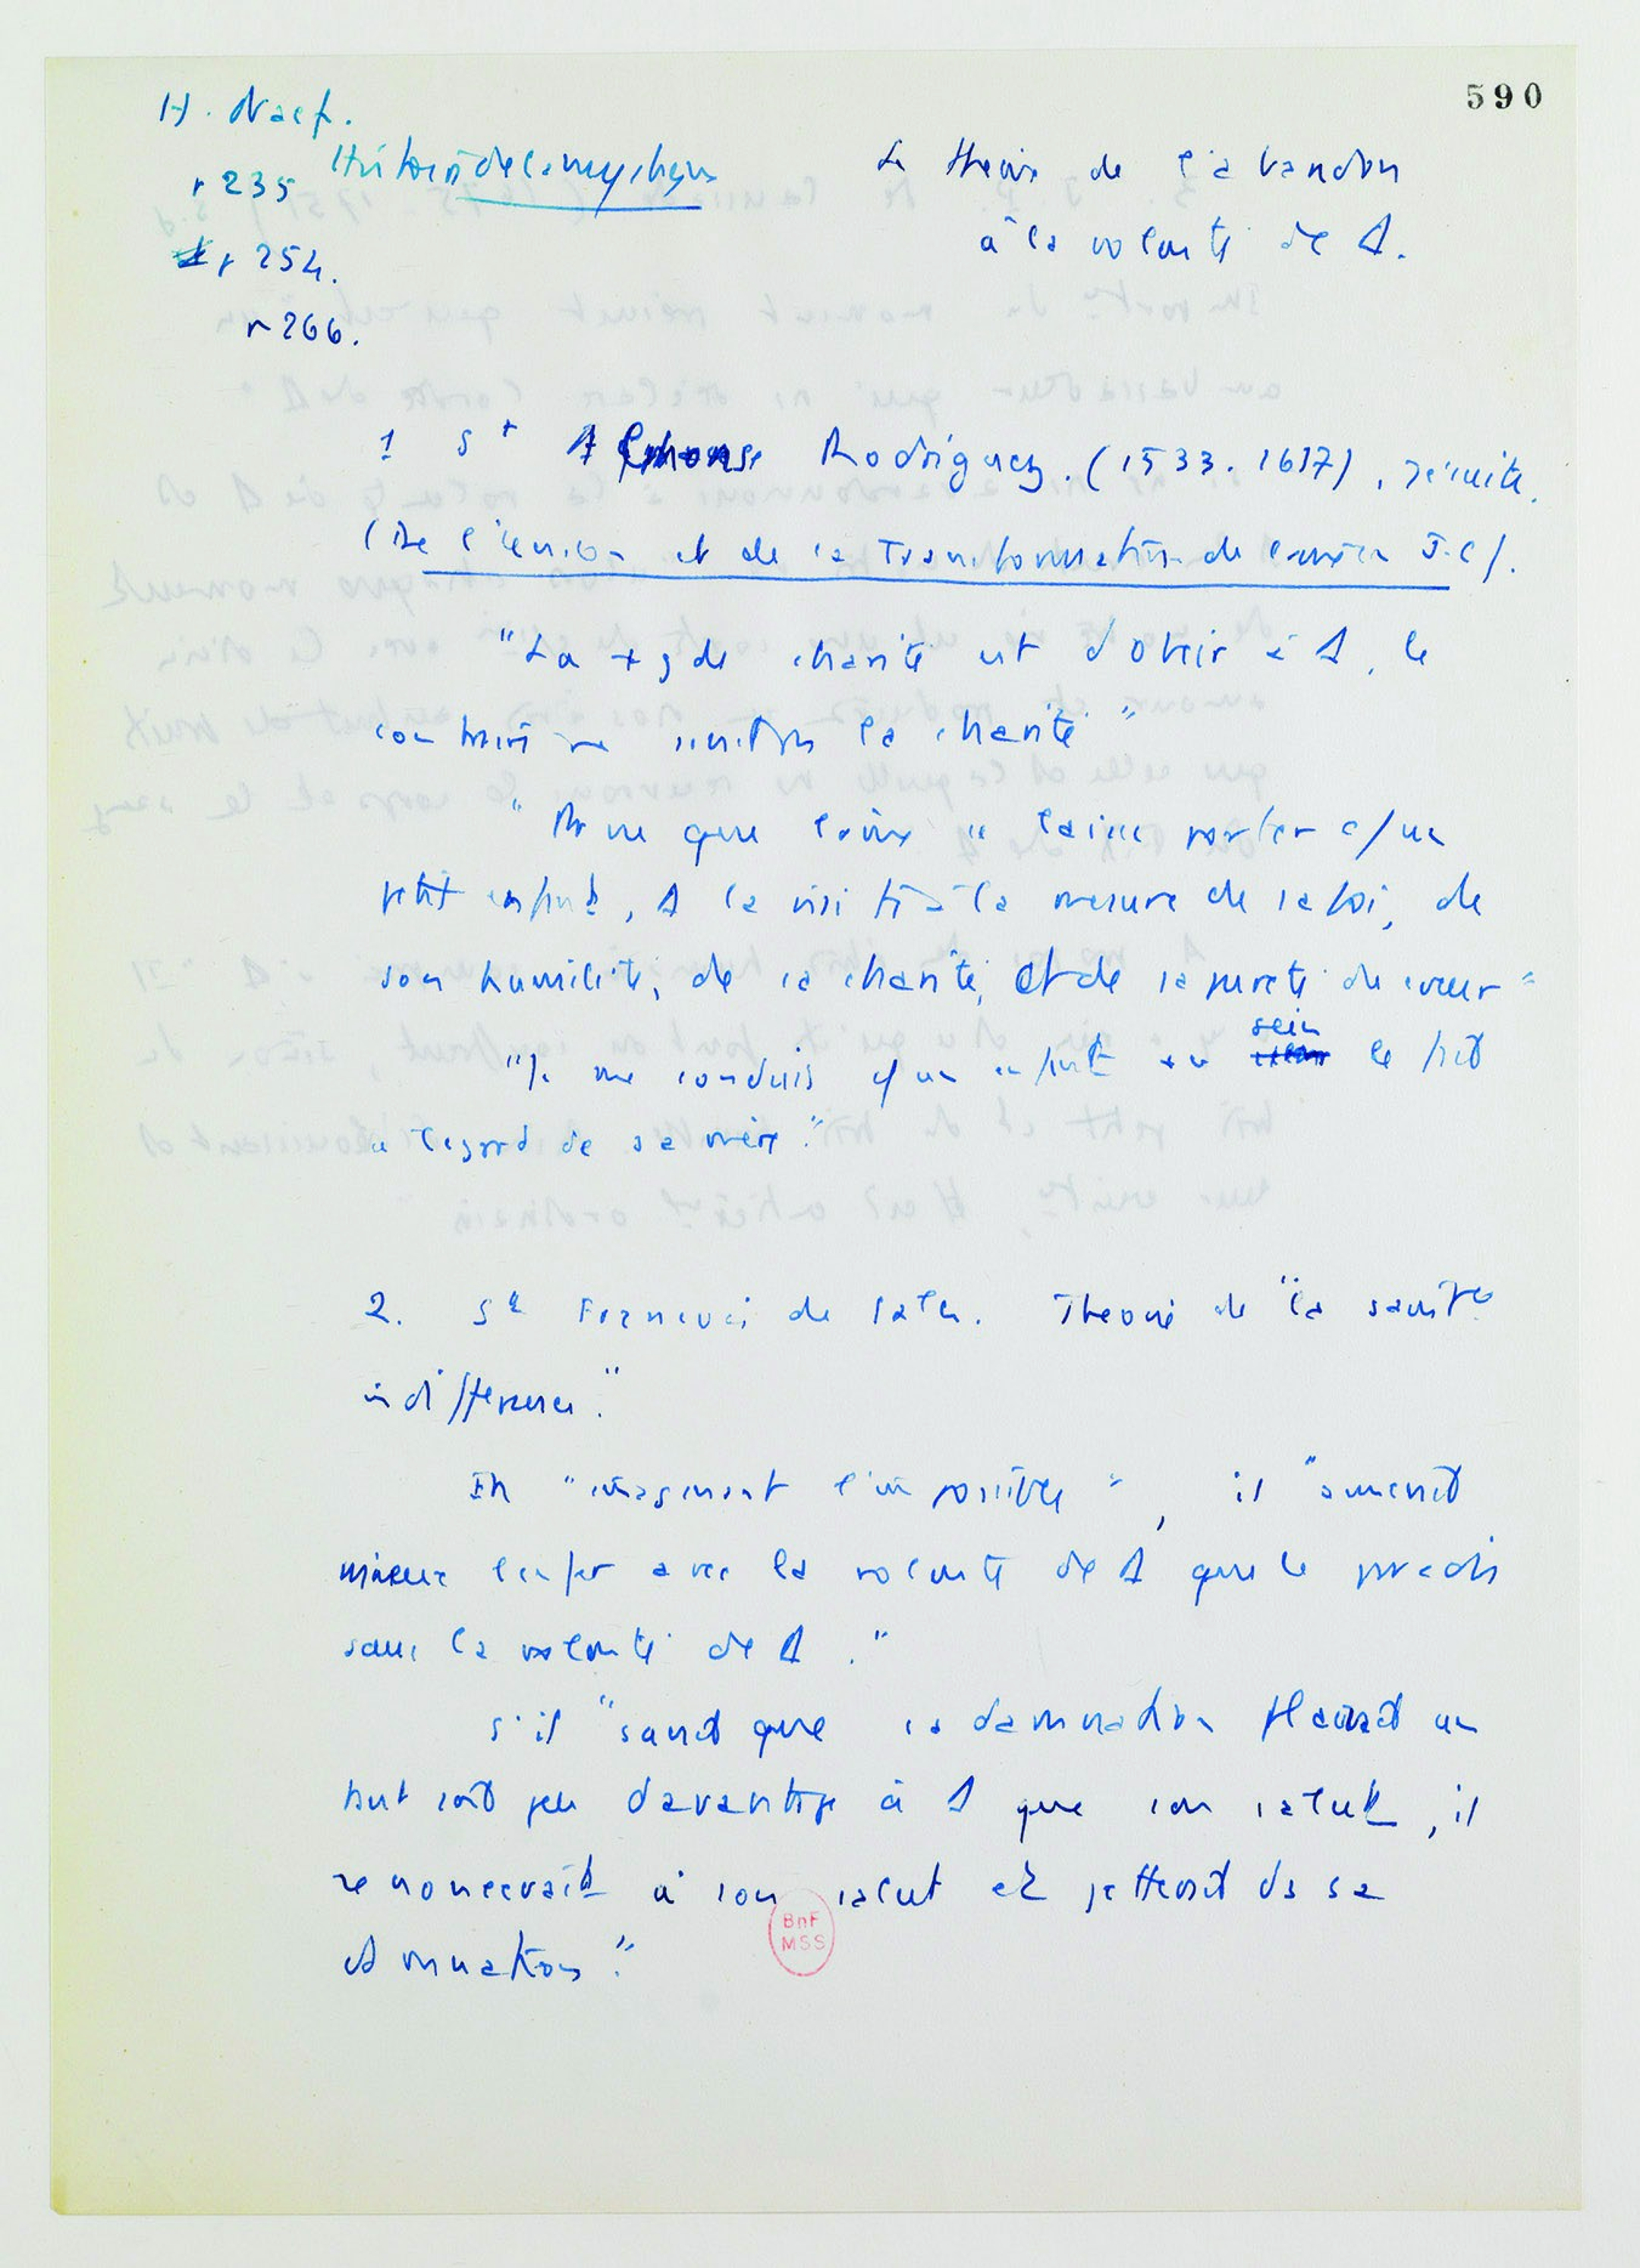 590
H. Naef.
Histoire de la mystique
p 235
p 254.
p 266.
La theorie de l'abandon
à la volonté de Δ.
1 St Alphonse Rodriguez. (1533. 1617), jésuite.
(De l'union et de la Transformation de l'âme en J.C).
"La + gde charité est d'obéir à Δ, le
contraire ne sentir la charité"
que l'âme se laisse porter c/ un
petit enfant, Δ la visite à la mesure de sa foi, de
son humilité, de sa charité, et de sa pureté du cœur"
"Je me conduis c/ un enfant au sein le fait
à l'égard de sa mère."
2. St François de Sales. Theorie de "la sainte
indifférence."
En "imaginant l'impossible", il "aimerait
mieux l'enfer avec la volonté de Δ que le paradis
sans la volonté de Δ."
S'il "savait que sa damnation plairait un
tout soit peu davantage à Δ que son salut, il
renoncerait à son salut et se jetterait ds sa
damnation."
BnF
MSS